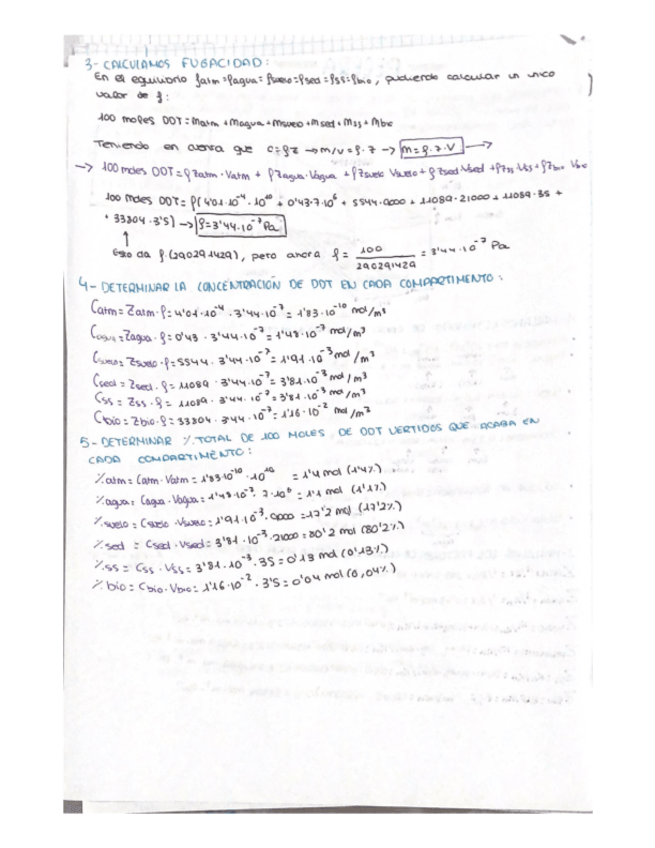 3- CALCULAMOS FUGACIDAD:
En el equilibrio fatm = fagua = fsuelo = fsed = fss = fbio, pudiendo calcular un unico
valor de f:
100 moles DDT = matm + magua + msuelo + msed + mss + mbio
Teniendo en cuenta que c = f·z → m/v = f·z → m = f·z·V →
→ 100 moles DDT = f Zatm · Vatm + f Zagua · Vagua + f Zsuelo Vsuelo + f Zsed Vsed + f Zss Vss + f Zbio Vbio
100 moles DDT = f (4'01·10⁻⁴ · 10¹⁰ + 0'43·7·10⁶ + 5544·9000 + 11089·21000 + 11089·35 +
+ 33804·3'5) → f = 3'44·10⁻⁷ Pa
↑
Esto da f·(290291429), pero ahora f = 100 / 290291429 = 3'44·10⁻⁷ Pa
4- DETERMINAR LA CONCENTRACIÓN DE DDT EN CADA COMPARTIMENTO:
Catm = Zatm · f = 4'01·10⁻⁴ · 3'44·10⁻⁷ = 1'83·10⁻¹⁰ mol/m³
Cagua = Zagua · f = 0'43 · 3'44·10⁻⁷ = 1'48·10⁻⁷ mol/m³
Csuelo = Zsuelo · f = 5544 · 3'44·10⁻⁷ = 1'91·10⁻³ mol/m³
Csed = Zsed · f = 11089 · 3'44·10⁻⁷ = 3'81·10⁻³ mol/m³
Css = Zss · f = 11089 · 3'44·10⁻⁷ = 3'81·10⁻³ mol/m³
Cbio = Zbio · f = 33804 · 3'44·10⁻⁷ = 1'16·10⁻² mol/m³
5- DETERMINAR % TOTAL DE 100 MOLES DE DDT VERTIDOS QUE ACABA EN
CADA COMPARTIMENTO:
% atm = Catm · Vatm = 1'83·10⁻¹⁰ · 10¹⁰ = 1'4 mol (1'4%)
% agua = Cagua · Vagua = 1'48·10⁻⁷ · 7·10⁶ = 1'1 mol (1'1%)
% suelo = Csuelo · Vsuelo = 1'91·10⁻³ · 9000 = 17'2 mol (17'2%)
% sed = Csed · Vsed = 3'81·10⁻³ · 21000 = 80'2 mol (80'2%)
% ss = Css · Vss = 3'81·10⁻³ · 35 = 0'13 mol (0'13%)
% bio = Cbio · Vbio = 1'16·10⁻² · 3'5 = 0'04 mol (0,04%)